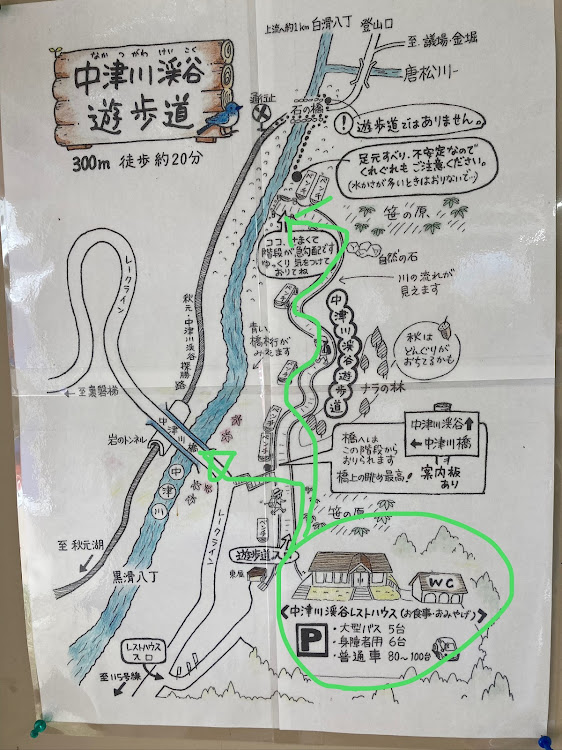 なかつがわけいこく
中津川渓谷
遊歩道
300m 徒歩約20分
上流へ約1km 白滑八丁
登山口
至.議場・金堀
唐松川
通行止
石の橋
! 遊歩道ではありません。
足元すべり、不安定なので
くれぐれもご注意ください。
(水かさが多いときはおりないで…)
ベンチ
ベンチ
笹の原
ココ、せまくて
階段が急勾配です
ゆっくり気をつけて
おりてね
自然の石
川の流れが
見えます
レークライン
秋元・中津川渓谷探勝路
青い、
橋桁が
みえます
ベンチ
中津川渓谷遊歩道
秋は
どんぐりが
おちてるかも
ナラの林
ベンチ
至裏磐梯
岩のトンネル
中津川橋
中津川
ベンチ
橋へは
この階段から
おりられます
橋上の眺め最高!
中津川渓谷↑
←中津川橋
案内板
あり
至秋元湖
黒滑八丁
レークライン
ベンチ
笹の原
遊歩道入口
東屋
WC
中津川渓谷レストハウス(お食事・おみやげ)
P
・大型バス 5台
・身障者用 6台
・普通車 80〜100台
レストハウス
入口
至115号線